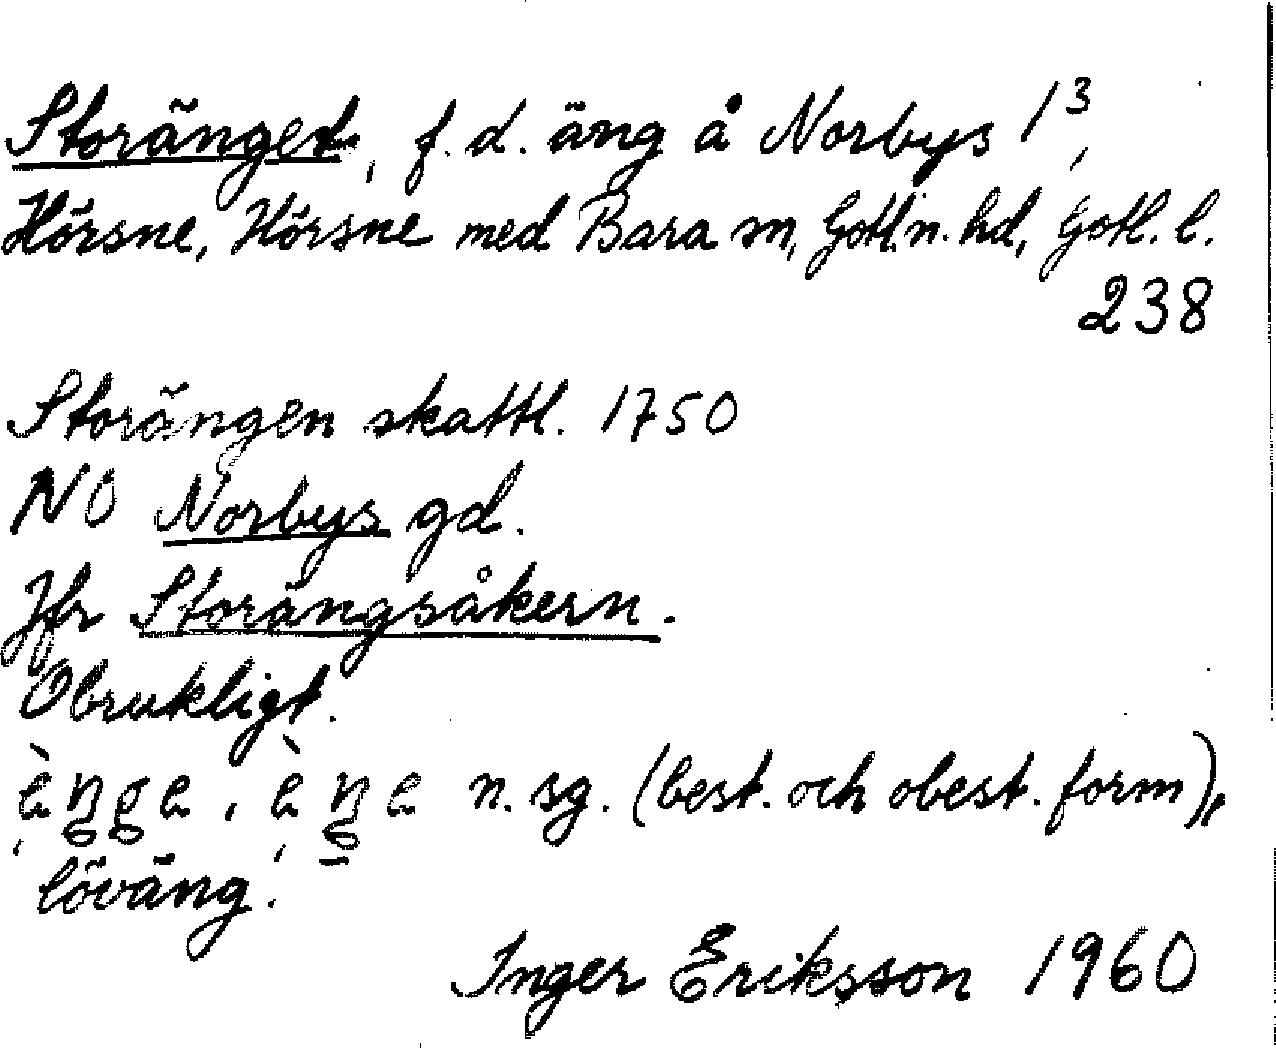 Storänget, f.d. äng å Norbys 1³,
Hörsne, Hörsne med Bara sn, Gotl.n. hd, Gotl. l.
238
Storängen skattl. 1750
NO Norbys gd.
Jfr Storängsåkern.
Obrukligt.
ὲŋge, ὲŋe n. sg. (best. och obest. form),
löväng.
Inger Eriksson 1960